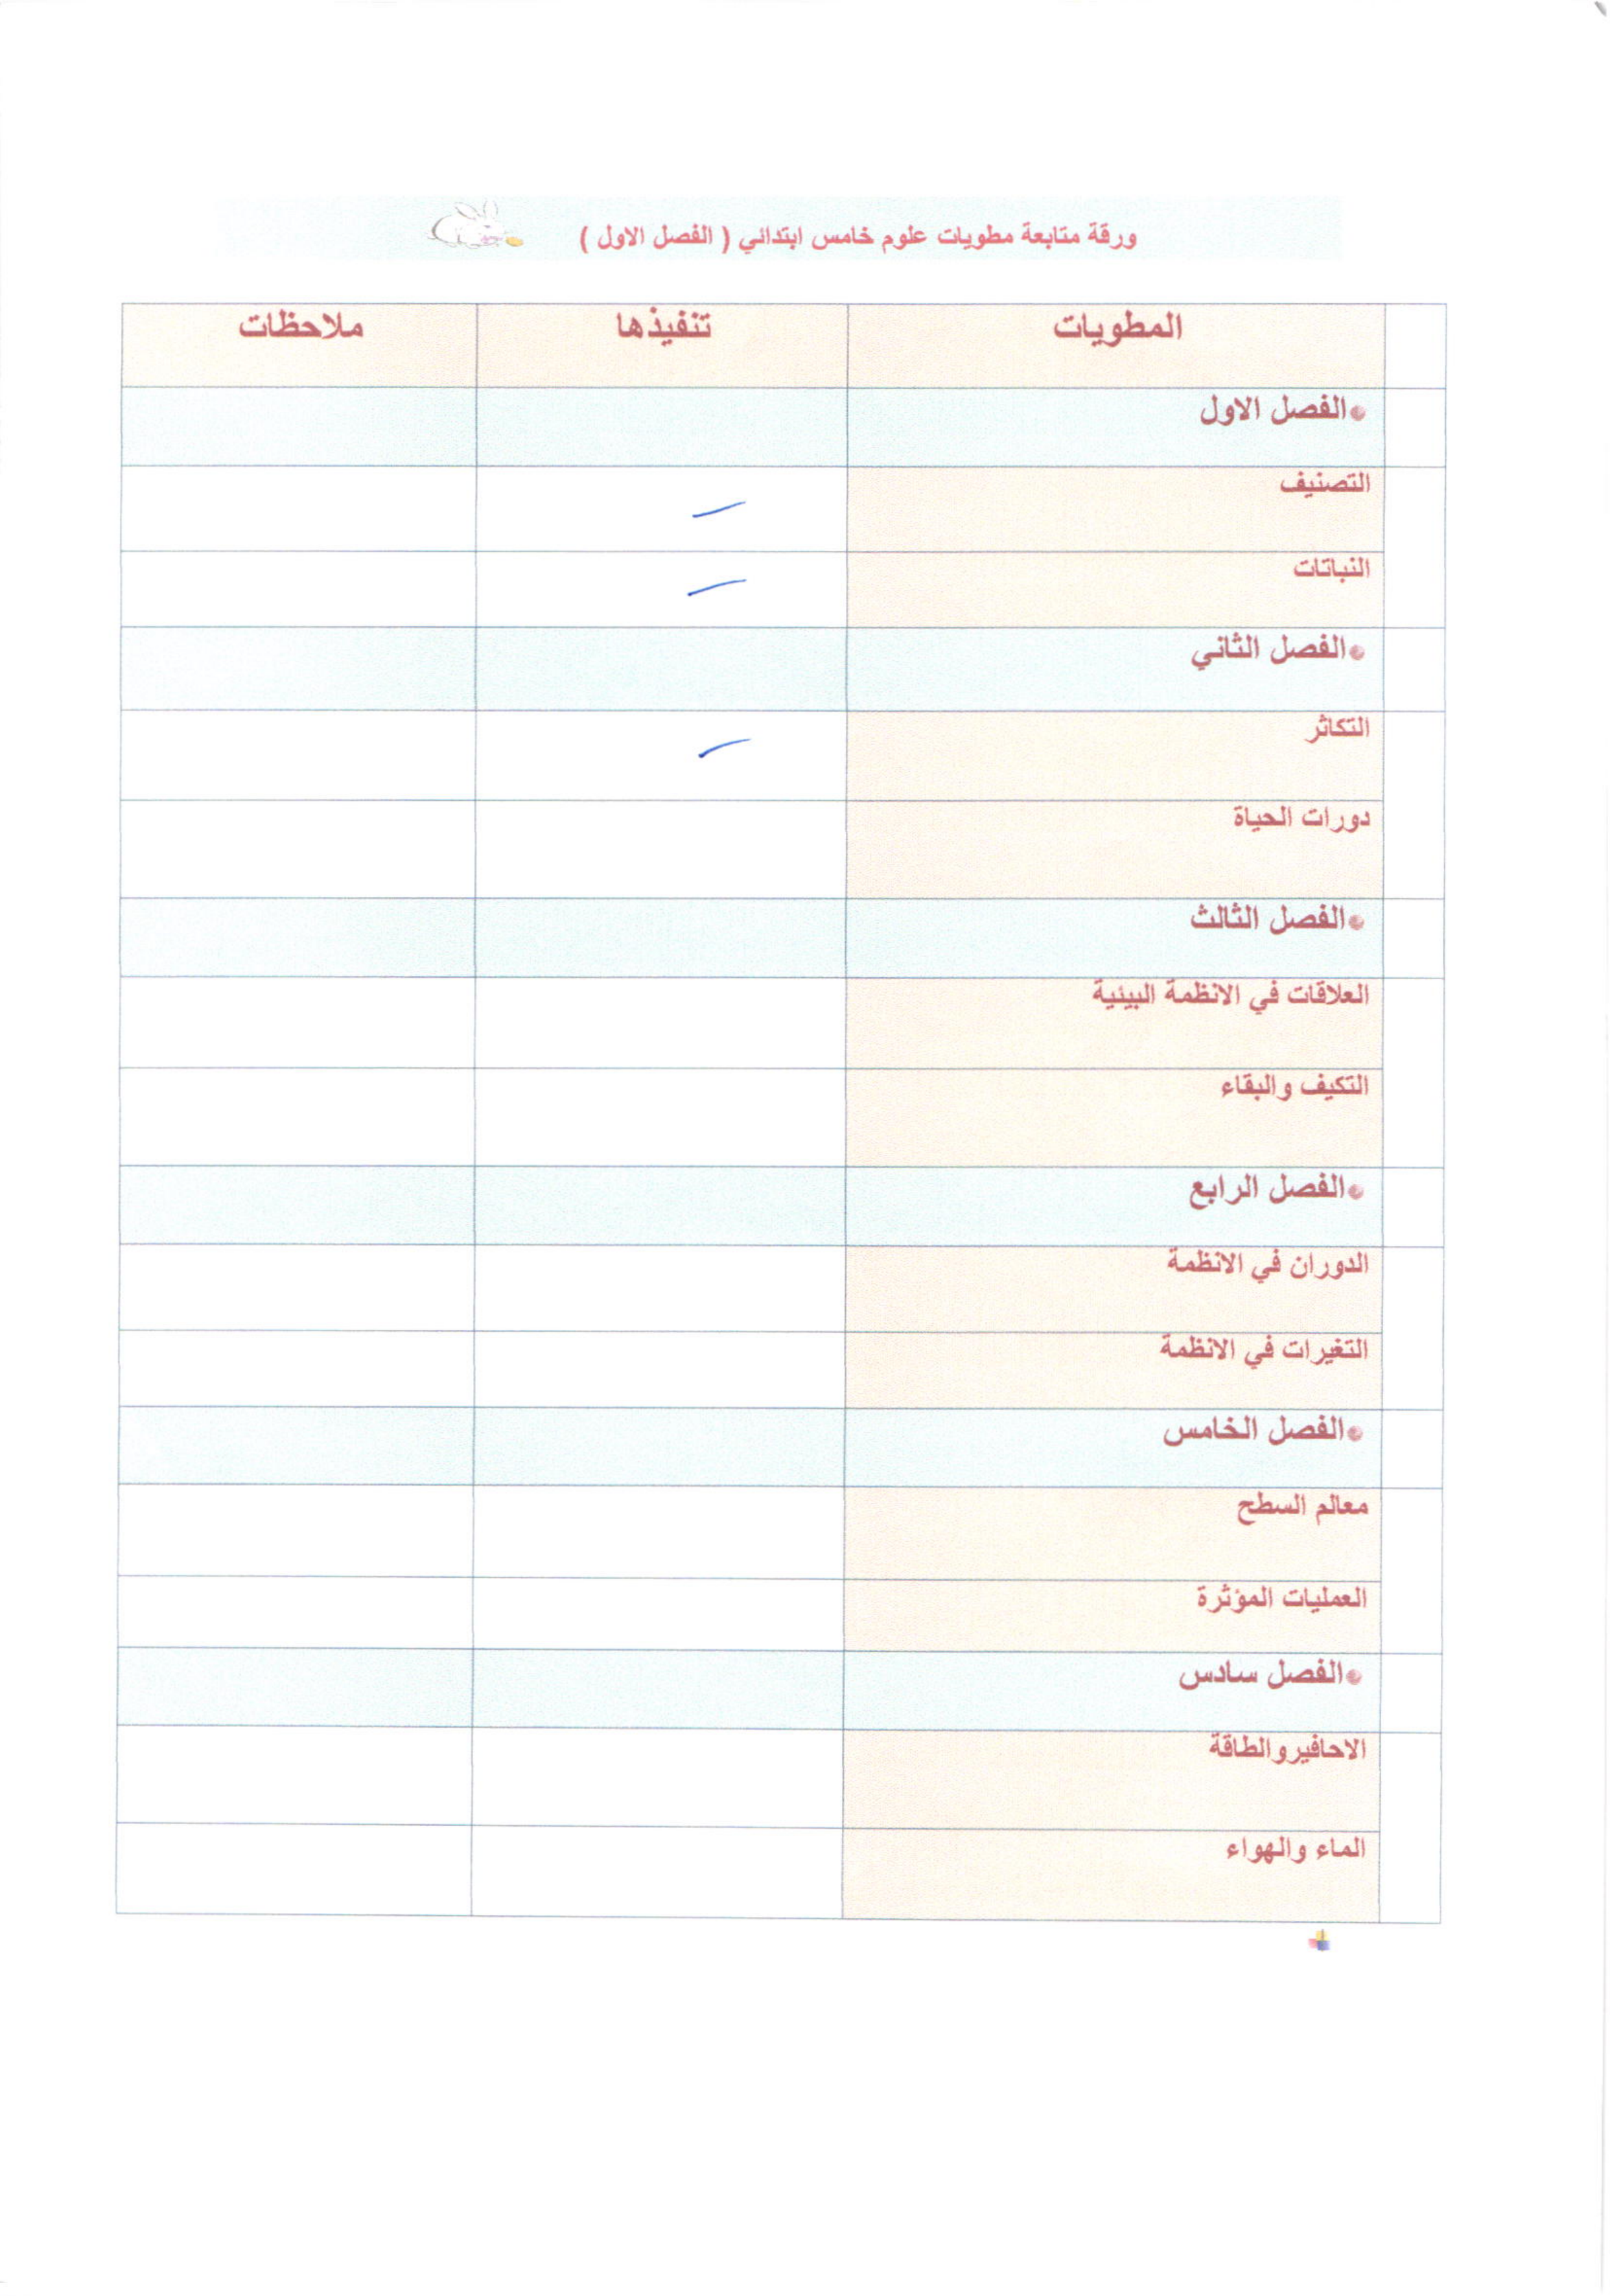 ورقة متابعة مطويات علوم خامس ابتدائي ( الفصل الاول )
المطويات تنفيذها ملاحظات
الفصل الاول
التصنيف
النباتات
الفصل الثاني
التكاثر
دورات الحياة
الفصل الثالث
العلاقات في الانظمة البيئية
التكيف والبقاء
الفصل الرابع
الدوران في الانظمة
التغيرات في الانظمة
الفصل الخامس
معالم السطح
العمليات المؤثرة
الفصل سادس
الاحافيروالطاقة
الماء والهواء